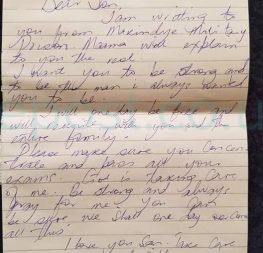 Dear Son,
I am writing to
you from Makindye Military
Prison. Maama will explain
to you the rest.
I want you to be strong and
to be the man i always wanted
you to be.
I will one day be free and
will reunite with you and the
entire family.
Please make sure you concen
trate and pass all your
exams. God is taking care
of me. Be strong and always
pray for me. You can
be sure we shall one day overcome
all this.
I love you Son. Take Care